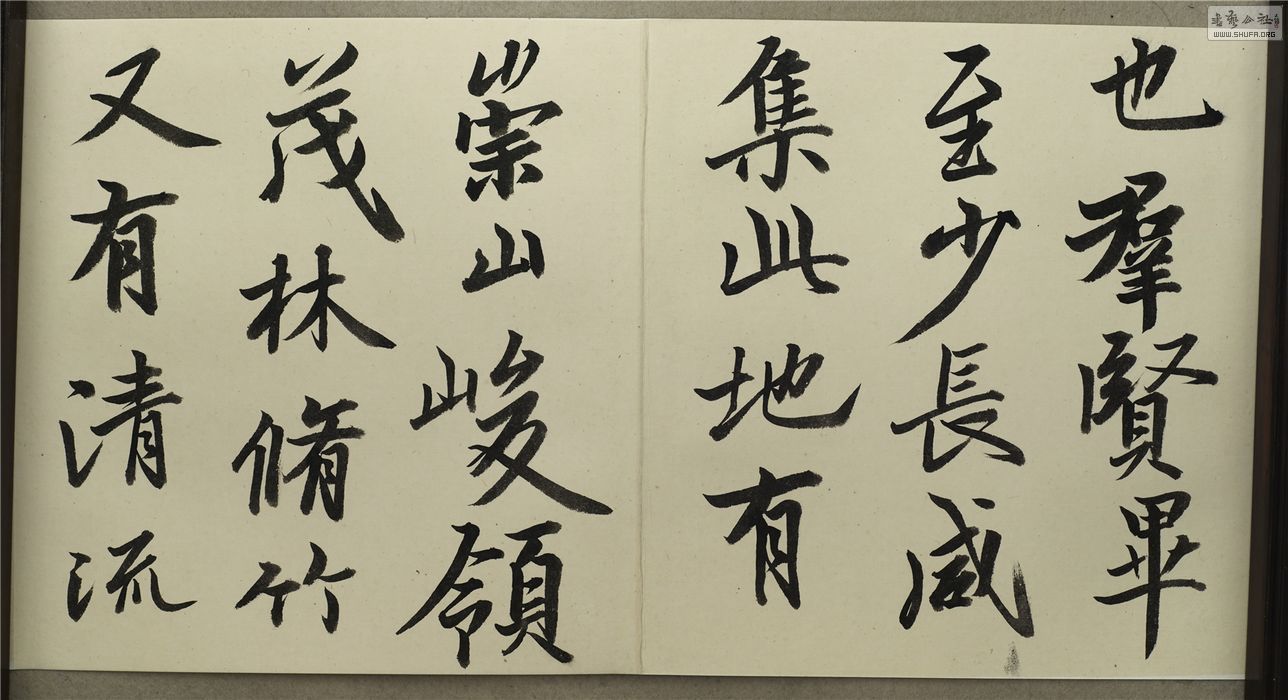 也羣賢畢
至少長咸
集此地有
崇山峻領
茂林脩竹
又有清流
書藝公社
WWW.SHUFA.ORG